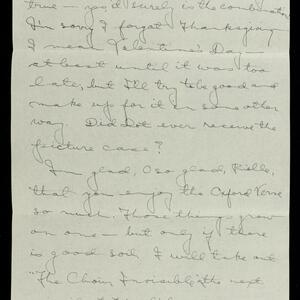 true — yes, surely is the combination
I'm sorry I forgot Thanksgiving
I mean Valentine's Day —
at least until it was too
late, but I'll try to be good and
make up for it in some other
way. Did Dot ever receive the
picture case?
I'm glad, O so glad,
that you enjoy the Oxford Verse
so much. Those things grow
on one — but only if there
is good soil. I will take out
"The Choir Invisible" the next